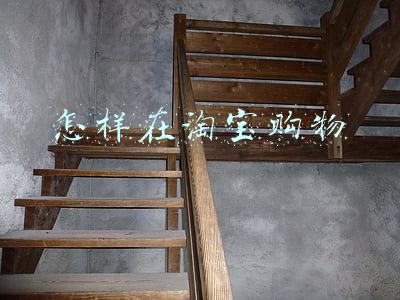 怎样在淘宝购物